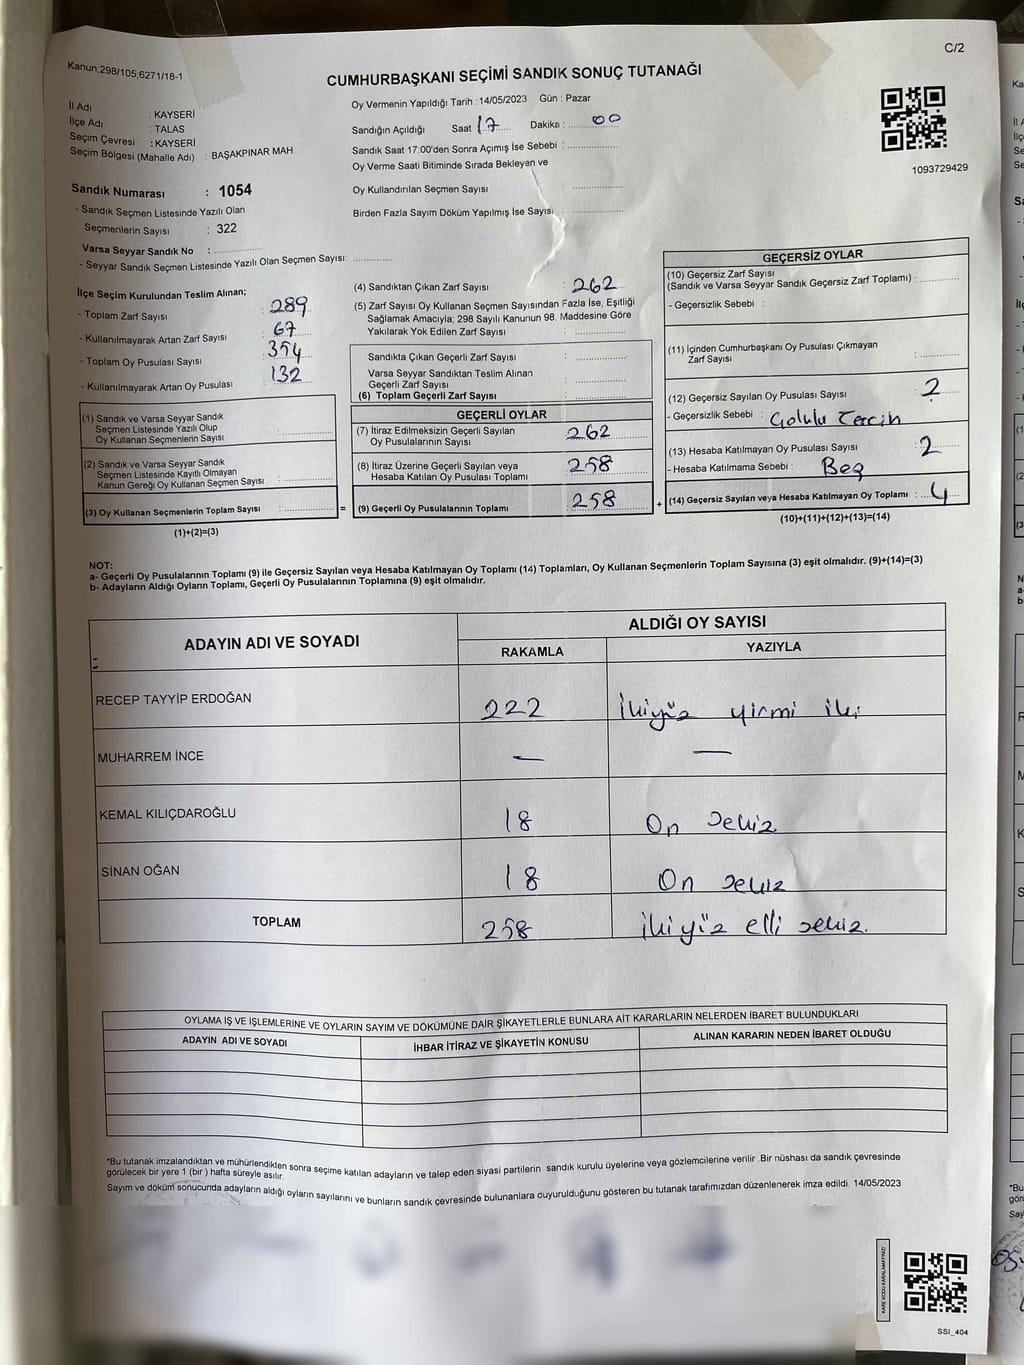 C/2
Kanun;298/105;6271/18-1
CUMHURBAŞKANI SEÇİMİ SANDIK SONUÇ TUTANAĞI
İl Adı : KAYSERİ
İlçe Adı : TALAS
Seçim Çevresi : KAYSERİ
Seçim Bölgesi (Mahalle Adı) : BAŞAKPINAR MAH.
Oy Vermenin Yapıldığı Tarih : 14/05/2023 Gün : Pazar
Sandığın Açıldığı Saat 17 Dakika : 00
Sandık Saat 17:00'den Sonra Açımış İse Sebebi :
Oy Verme Saati Bitiminde Sırada Bekleyen ve
Oy Kullandırılan Seçmen Sayısı :
Birden Fazla Sayım Döküm Yapılmış İse Sayısı :
1093729429
Sandık Numarası : 1054
- Sandık Seçmen Listesinde Yazılı Olan
Seçmenlerin Sayısı : 322
Varsa Seyyar Sandık No :
- Seyyar Sandık Seçmen Listesinde Yazılı Olan Seçmen Sayısı:
İlçe Seçim Kurulundan Teslim Alınan;
- Toplam Zarf Sayısı : 289
- Kullanılmayarak Artan Zarf Sayısı : 67
- Toplam Oy Pusulası Sayısı : 394
- Kullanılmayarak Artan Oy Pusulası : 132
(1) Sandık ve Varsa Seyyar Sandık
Seçmen Listesinde Yazılı Olup
Oy Kullanan Seçmenlerin Sayısı :
(2) Sandık ve Varsa Seyyar Sandık
Seçmen Listesinde Kayıtlı Olmayan
Kanun Gereği Oy Kullanan Seçmen Sayısı :
(3) Oy Kullanan Seçmenlerin Toplam Sayısı : =
(1)+(2)=(3)
(4) Sandıktan Çıkan Zarf Sayısı : 262
(5) Zarf Sayısı Oy Kullanan Seçmen Sayısından Fazla İse, Eşitliği
Sağlamak Amacıyla; 298 Sayılı Kanunun 98. Maddesine Göre
Yakılarak Yok Edilen Zarf Sayısı :
Sandıkta Çıkan Geçerli Zarf Sayısı :
Varsa Seyyar Sandıktan Teslim Alınan
Geçerli Zarf Sayısı :
(6) Toplam Geçerli Zarf Sayısı :
GEÇERLİ OYLAR
(7) İtiraz Edilmeksizin Geçerli Sayılan
Oy Pusulalarının Sayısı : 262
(8) İtiraz Üzerine Geçerli Sayılan veya
Hesaba Katılan Oy Pusulası Toplamı : 258
(9) Geçerli Oy Pusulalarının Toplamı : 258 +
GEÇERSİZ OYLAR
(10) Geçersiz Zarf Sayısı
(Sandık ve Varsa Seyyar Sandık Geçersiz Zarf Toplamı) :
- Geçersizlik Sebebi :
(11) İçinden Cumhurbaşkanı Oy Pusulası Çıkmayan
Zarf Sayısı :
(12) Geçersiz Sayılan Oy Pusulası Sayısı : 2
- Geçersizlik Sebebi :
(13) Hesaba Katılmayan Oy Pusulası Sayısı : 2
- Hesaba Katılmama Sebebi : Boş
(14) Geçersiz Sayılan veya Hesaba Katılmayan Oy Toplamı : 4
(10)+(11)+(12)+(13)=(14)
NOT:
a- Geçerli Oy Pusulalarının Toplamı (9) ile Geçersiz Sayılan veya Hesaba Katılmayan Oy Toplamı (14) Toplamları, Oy Kullanan Seçmenlerin Toplam Sayısına (3) eşit olmalıdır. (9)+(14)=(3)
b- Adayların Aldığı Oyların Toplamı, Geçerli Oy Pusulalarının Toplamına (9) eşit olmalıdır.
ADAYIN ADI VE SOYADI ALDIĞI OY SAYISI
RAKAMLA YAZIYLA
RECEP TAYYİP ERDOĞAN 222 İkiyüz yirmi iki
MUHARREM İNCE — —
KEMAL KILIÇDAROĞLU 18 On sekiz
SİNAN OĞAN 18 On sekiz
TOPLAM 258 İkiyüz elli sekiz.
OYLAMA İŞ VE İŞLEMLERİNE VE OYLARIN SAYIM VE DÖKÜMÜNE DAİR ŞİKAYETLERLE BUNLARA AİT KARARLARIN NELERDEN İBARET BULUNDUKLARI
ADAYIN ADI VE SOYADI İHBAR İTİRAZ VE ŞİKAYETİN KONUSU ALINAN KARARIN NEDEN İBARET OLDUĞU
*Bu tutanak imzalandıktan ve mühürlendikten sonra seçime katılan adayların ve talep eden siyasi partilerin sandık kurulu üyelerine veya gözlemcilerine verilir .Bir nüshası da sandık çevresinde
görülecek bir yere 1 (bir ) hafta süreyle asılır.
Sayım ve döküm sonucunda adayların aldığı oyların sayılarını ve bunların sandık çevresinde bulunanlara duyurulduğunu gösteren bu tutanak tarafımızdan düzenlenerek imza edildi. 14/05/2023
KARE KODU KARALAMAYINIZ!
SSI_404